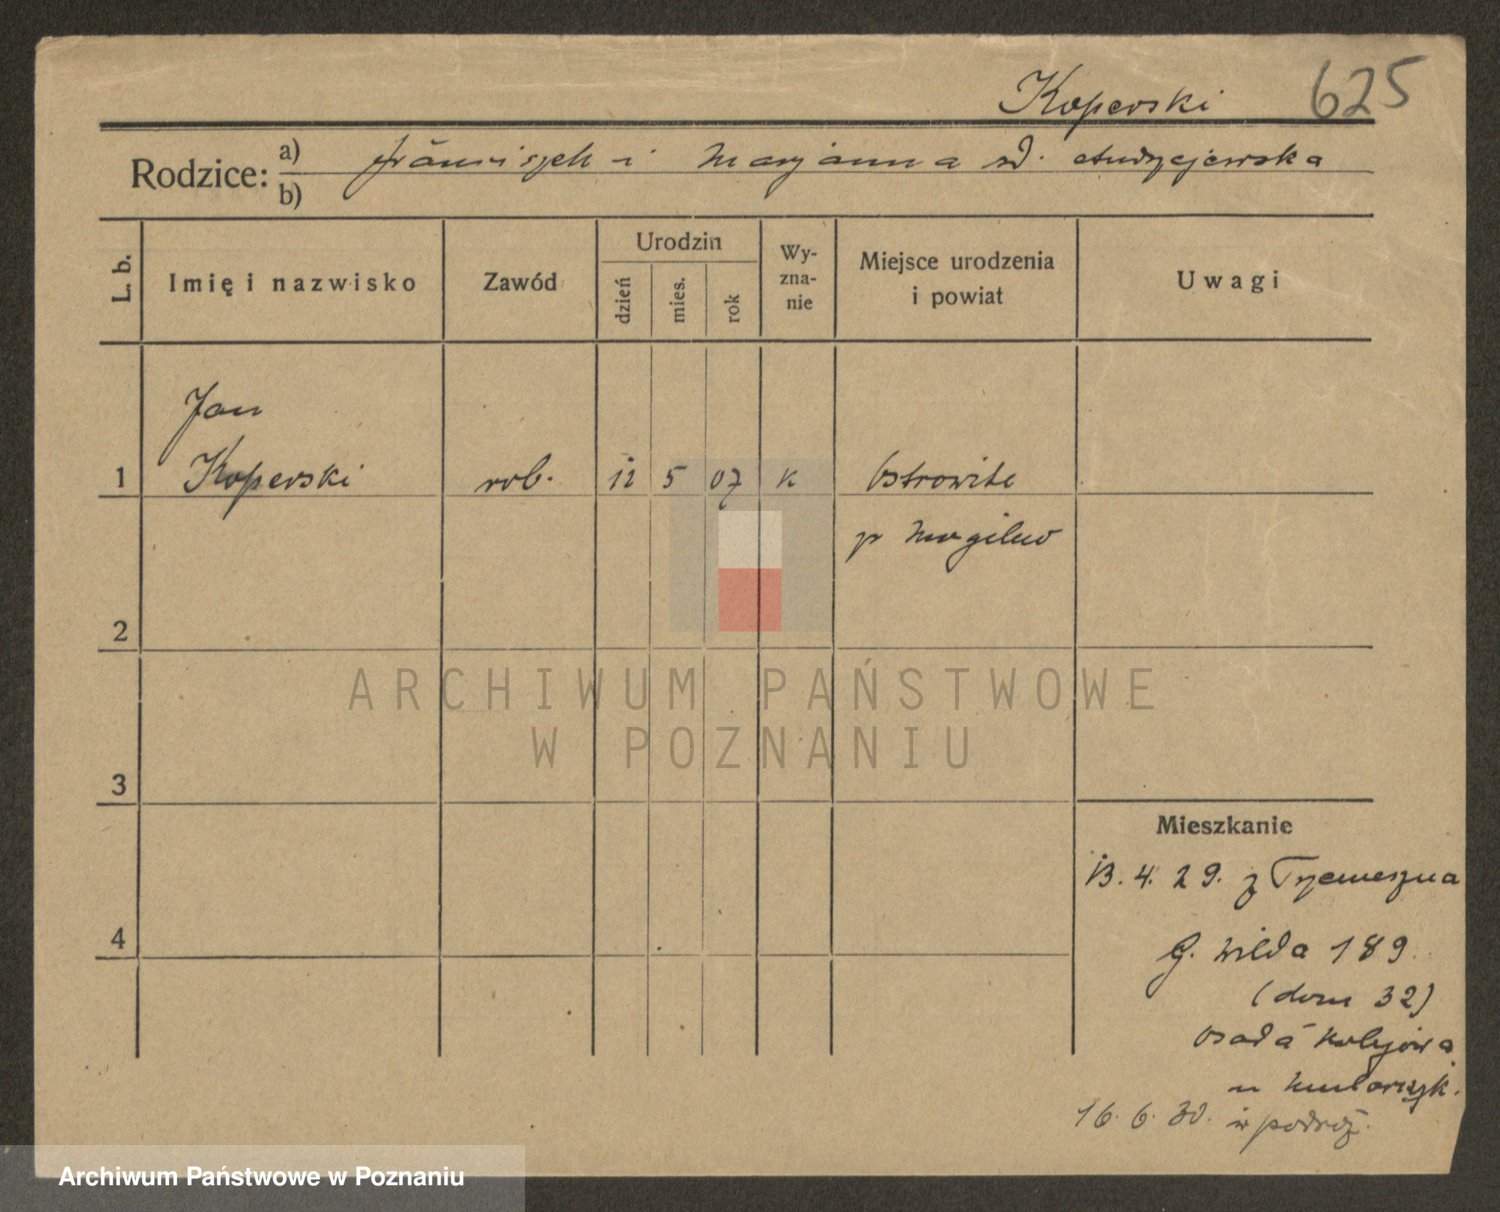 Koperski 625
Rodzice: a) b) Franciszek i Marjanna zd. Andrzejewska
L. b. Imię i nazwisko Zawód Urodzin dzień mies. rok Wy-zna-nie Miejsce urodzenia i powiat Uwagi
Jan
1 Koperski rob. 12 5 07 k Ostrowite
p Mogilno
2
3
Mieszkanie
13. 4. 29. z Trzemeszna
4
G. Wilda 189.
(dom 32)
osada kolejowa
u
16. 6. 30. w podróż.
ARCHIWUM PAŃSTWOWE
W POZNANIU
Archiwum Państwowe w Poznaniu